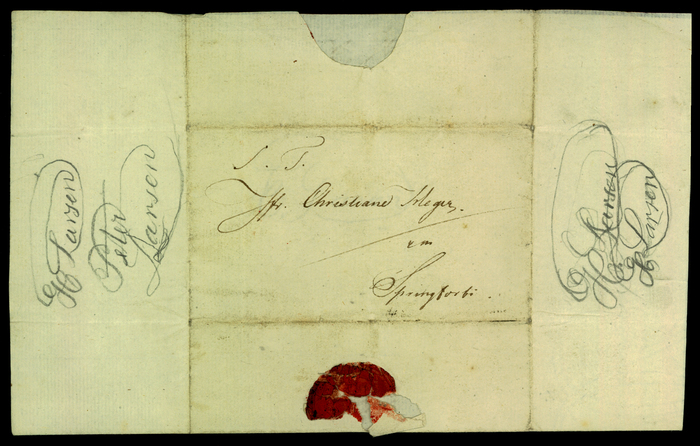 S. T.
Jfr. Christiane Meyer.
Springforbi.
H Larsen
Peter
Larsen
H Larsen
H Larsen